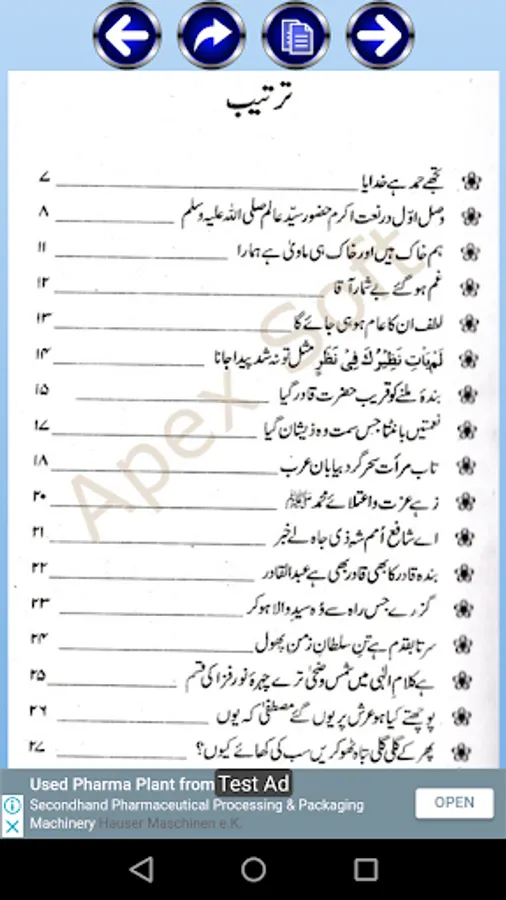 ترتیب
تجھے حمد ہے خدایا ۷
وصل اوّل در نعت اکرم حضور سیّد عالم صلی اللہ علیہ وسلم ۸
ہم خاک ہیں اور خاک ہی ماویٰ ہے ہمارا ۱۱
غم ہو گئے بے شمار آقا ۱۲
لطف ان کا عام ہو ہی جائے گا ۱۳
لَمْ یَاتِ نَظِیْرُكَ فِیْ نَظَرٍ مثل تو نہ شد پیدا جانا ۱۴
بندہ ملنے کو قریب حضرت قادر گیا ۱۵
نعمتیں بانٹتا جس سمت وہ ذیشان گیا ۱۷
تاب مرأت سحر گرد بیابان عرب ۱۸
زہے عزت و اعتلائے محمد ﷺ ۲۰
اے شافع اُمم شہ ذی جاہ لے خبر ۲۱
بندہ قادر کا بھی قادر بھی ہے عبدالقادر ۲۲
گزرے جس راہ سے وُہ سیدِ والا ہو کر ۲۳
سر تا بقدم ہے تنِ سلطانِ زمن پھول ۲۴
ہے کلامِ الٰہی میں شمس وضحیٰ ترے چہرۂ نور فزا کی قسم ۲۵
پوچھتے کیا ہو عرش پر یوں گئے مصطفیٰ کہ یوں ۲۶
پھر کے گلی گلی تباہ ٹھوکریں سب کی کھائے کیوں؟ ۲۷
Apex Soft
Used Pharma Plant from Test Ad
Secondhand Pharmaceutical Processing & Packaging
Machinery Hauser Maschinen e.K.
OPEN